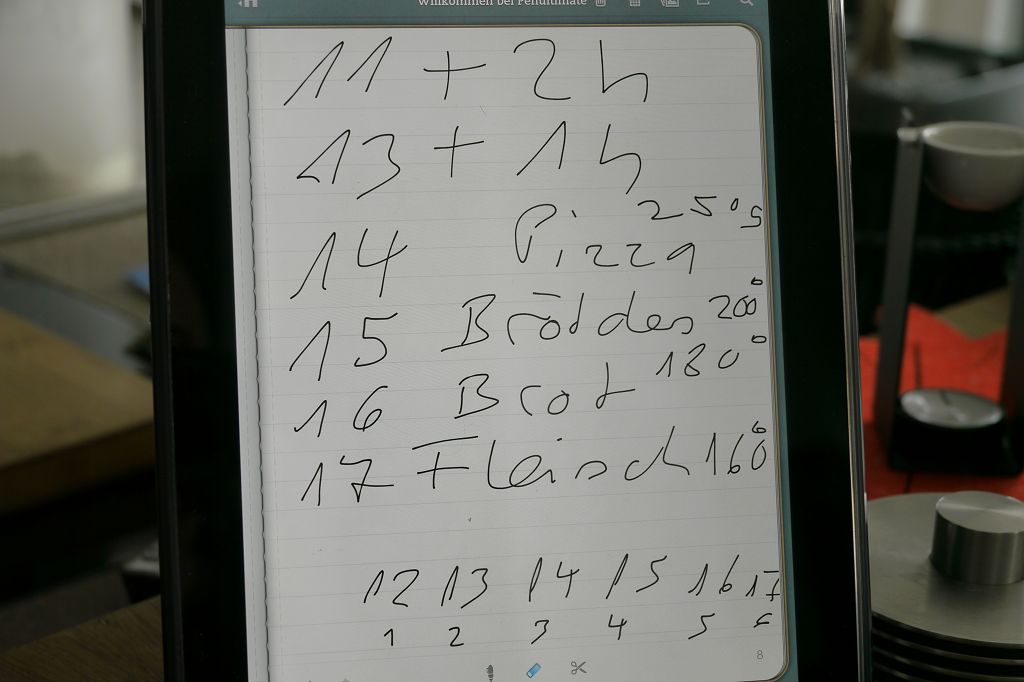 Willkommen bei Penultimate
11 + 2h
13 + 1h
14 Pizza 250°
15 Brötdes 200°
16 Brot 180°
17 Fleisch 160°
12 13 14 15 16 17
1 2 3 4 5 6
8